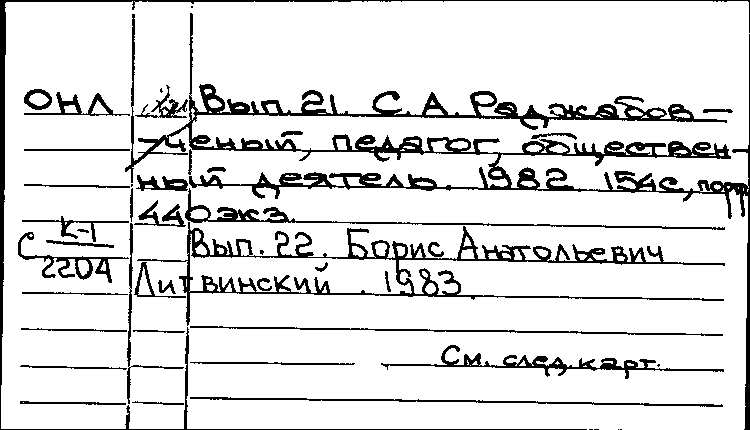 ОНЛ Вып. 21. С. А. Раджабов —
-ученый, педагог, обществен-
ный деятель. 1982 154с, портр
440экз.
С К-1/2204 Вып. 22. Борис Анатольевич
Литвинский. 1983
См. след. карт.